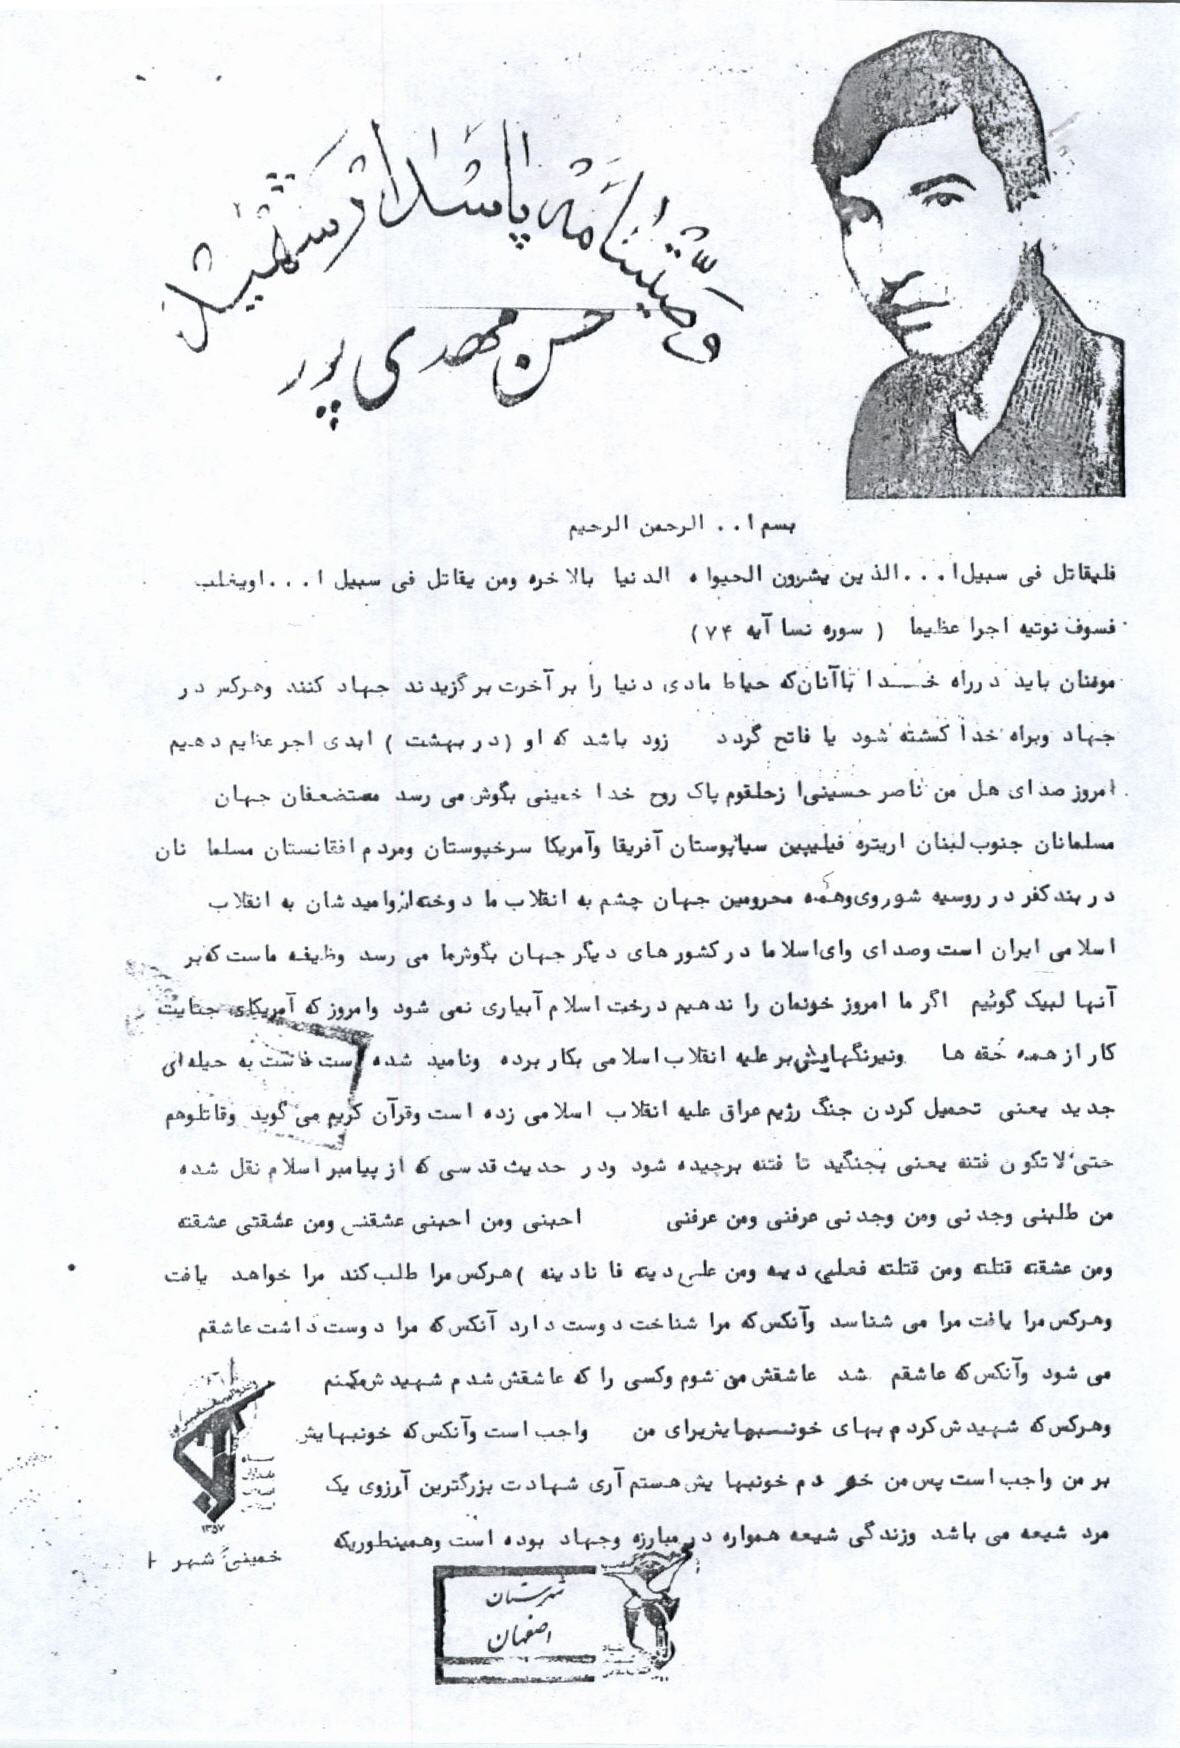 وصیتنامه پاسدار شهید
حسن مهدی پور
بسم ا.. الرحمن الرحیم
فلیقاتل فی سبیل ا...الذین یشرون الحیواه الدنیا بالاخره ومن یقاتل فی سبیل ا...اویغلب
فسوف نوتیه اجرا عظیما ( سوره نسا آیه ۷۴)
موقنان باید درراه خدا باآنان‌که حیاط مادی دنیا را بر آخرت برگزیدند جهاد کنند وهرکس در
جهاد وبراه خدا کشته شود یا فاتح گردد زود باشد که او (در بهشت ) ابدی اجر عظایم دهیم
امروز صدای هل من ناصر حسینی‌ا زحلقوم پاک روح خدا خمینی بگوش می رسد مستضعفان جهان
مسلمانان جنوب لبنان اریتره فیلیپین سیاپوستان آفریقا وآمریکا سرخپوستان ومردم افقانستان مسلما نان
در بند کفر در روسیه شوروی‌وهمه محرومین جهان چشم به انقلاب ما دوخته‌اندوامید شان به انقلاب
اسلامی ایران است وصدای وای‌اسلاما درکشورهای دیگر جهان بگوش‌ما می رسد وظیفه ماست که‌بر
آنها لبیک گوئیم اگر ما امروز خونمان را ندهیم درخت اسلام آبیاری نمی شود وامروز که آمریکای جنایت
کار از همه حقه ها ونیرنگهایش‌بر علیه انقلاب اسلامی بکار برده ونامید شده است دست به حیله‌ای
جدید یعنی تحمیل کردن جنگ رژیم عراق علیه انقلاب اسلامی زده است وقرآن کریم می گوید وقاتلوهم
حتی لاتکون فتنه یعنی بجنگید تا فتنه برچیده شود ودر حدیث قدسی که از پیامبر اسلام نقل شده
من طلبنی وجدنی ومن وجدنی عرفنی ومن عرفنی احبنی ومن احبنی عشقنی ومن عشقنی عشقته
ومن عشقته قتلته ومن قتلته فعلیی دیه ومن علی دیته فا نادیته )هرکس مرا طلب کند مرا خواهد یافت
وهرکس‌مرا یافت مرا می شناسد وآنکس‌که مرا شناخت دوست دارد آنکس‌که مرا دوست داشت عاشقم
می شود وآنکس‌که عاشقم شد عاشقش می شوم وکسی را که عاشقش شدم شهیدش‌میکنم
وهرکس‌که شهیدش کردم بهای خونبهایش‌برای من واجب است وآنکس‌که خونبهایش
بر من واجب است پس من خودم خونبهایش هستم آری شهادت بزرگترین آرزوی یک
مرد شیعه می باشد وزندگی شیعه همواره در مبارزه وجهاد بوده است وهمینطوریکه
سپاه
پاسداران
انقلاب
اسلامی
۱۳۵۷
خمینی شهر
شهرستان
اصفهان